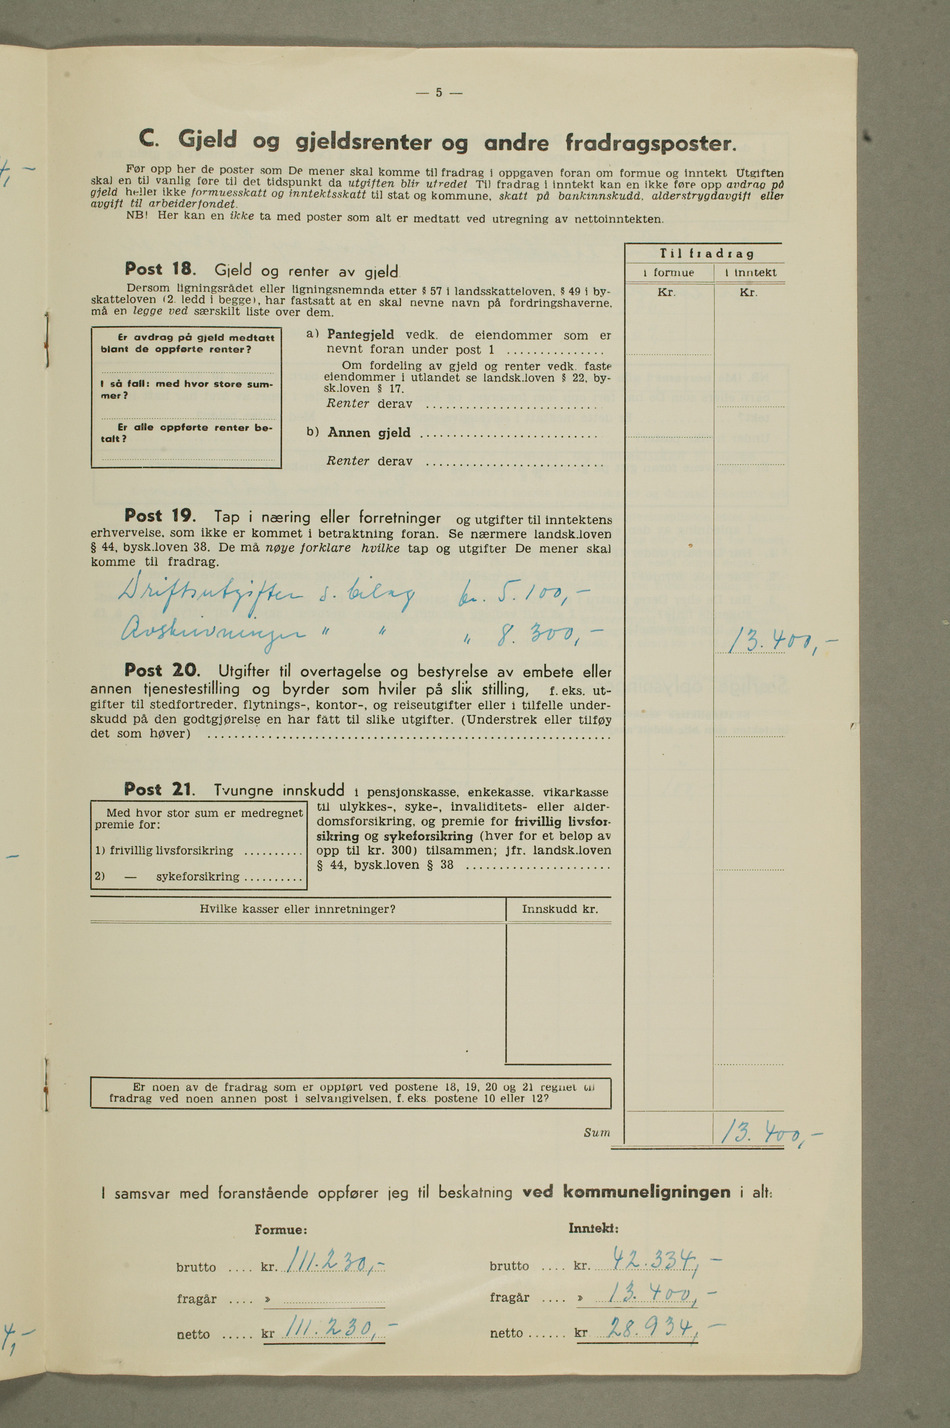 — 5 —
C. Gjeld og gjeldsrenter og andre fradragsposter.
Før opp her de poster som De mener skal komme til fradrag i oppgaven foran om formue og inntekt Utgiften
skal en til vanlig føre til det tidspunkt da utgiften blir utredet Til fradrag i inntekt kan en ikke føre opp avdrag på
gjeld heller ikke formuesskatt og inntektsskatt til stat og kommune, skatt på bankinnskudd, alderstrygdavgift eller
avgift til arbeiderfondet.
NB! Her kan en ikke ta med poster som alt er medtatt ved utregning av nettoinntekten.
Til fradrag
i formue i inntekt
Kr. Kr.
Post 18. Gjeld og renter av gjeld
Dersom ligningsrådet eller ligningsnemnda etter § 57 i landsskatteloven, § 49 i by-
skatteloven (2. ledd i begge), har fastsatt at en skal nevne navn på fordringshaverne,
må en legge ved særskilt liste over dem.
Er avdrag på gjeld medtatt
blant de oppførte renter?
I så fall: med hvor store sum-
mer?
Er alle oppførte renter be-
talt?
a) Pantegjeld vedk. de eiendommer som er
nevnt foran under post 1 ...............
Om fordeling av gjeld og renter vedk. faste
eiendommer i utlandet se landsk.loven § 22, by-
sk.loven § 17.
Renter derav ..........................
b) Annen gjeld ...........................
Renter derav ...........................
Post 19. Tap i næring eller forretninger og utgifter til inntektens
erhvervelse, som ikke er kommet i betraktning foran. Se nærmere landsk.loven
§ 44, bysk.loven 38. De må nøye forklare hvilke tap og utgifter De mener skal
komme til fradrag.
Driftsutgifter s. bilag kr. 5.100,-
Avskrivninger " " " 8.300,- 13.400,-
Post 20. Utgifter til overtagelse og bestyrelse av embete eller
annen tjenestestilling og byrder som hviler på slik stilling, f. eks. ut-
gifter til stedfortreder, flytnings-, kontor-, og reiseutgifter eller i tilfelle under-
skudd på den godtgjørelse en har fått til slike utgifter. (Understrek eller tilføy
det som høver) ............................................................
Post 21. Tvungne innskudd i pensjonskasse, enkekasse, vikarkasse
til ulykkes-, syke-, invaliditets- eller alder-
domsforsikring, og premie for frivillig livsfor-
sikring og sykeforsikring (hver for et beløp av
opp til kr. 300) tilsammen; jfr. landsk.loven
§ 44, bysk.loven § 38 ......................
Med hvor stor sum er medregnet
premie for:
1) frivillig livsforsikring ..........
2) — sykeforsikring ..........
Hvilke kasser eller innretninger? Innskudd kr.
Er noen av de fradrag som er oppført ved postene 18, 19, 20 og 21 regnet til
fradrag ved noen annen post i selvangivelsen, f. eks. postene 10 eller 12?
Sum 13.400,-
I samsvar med foranstående oppfører jeg til beskatning ved kommuneligningen i alt:
Formue: Inntekt:
brutto .... kr. 111.230,- brutto .... kr. 42.334,-
fragår .... » fragår .... » 13.400,-
netto ..... kr 111.230,- netto ...... kr 28.934,-